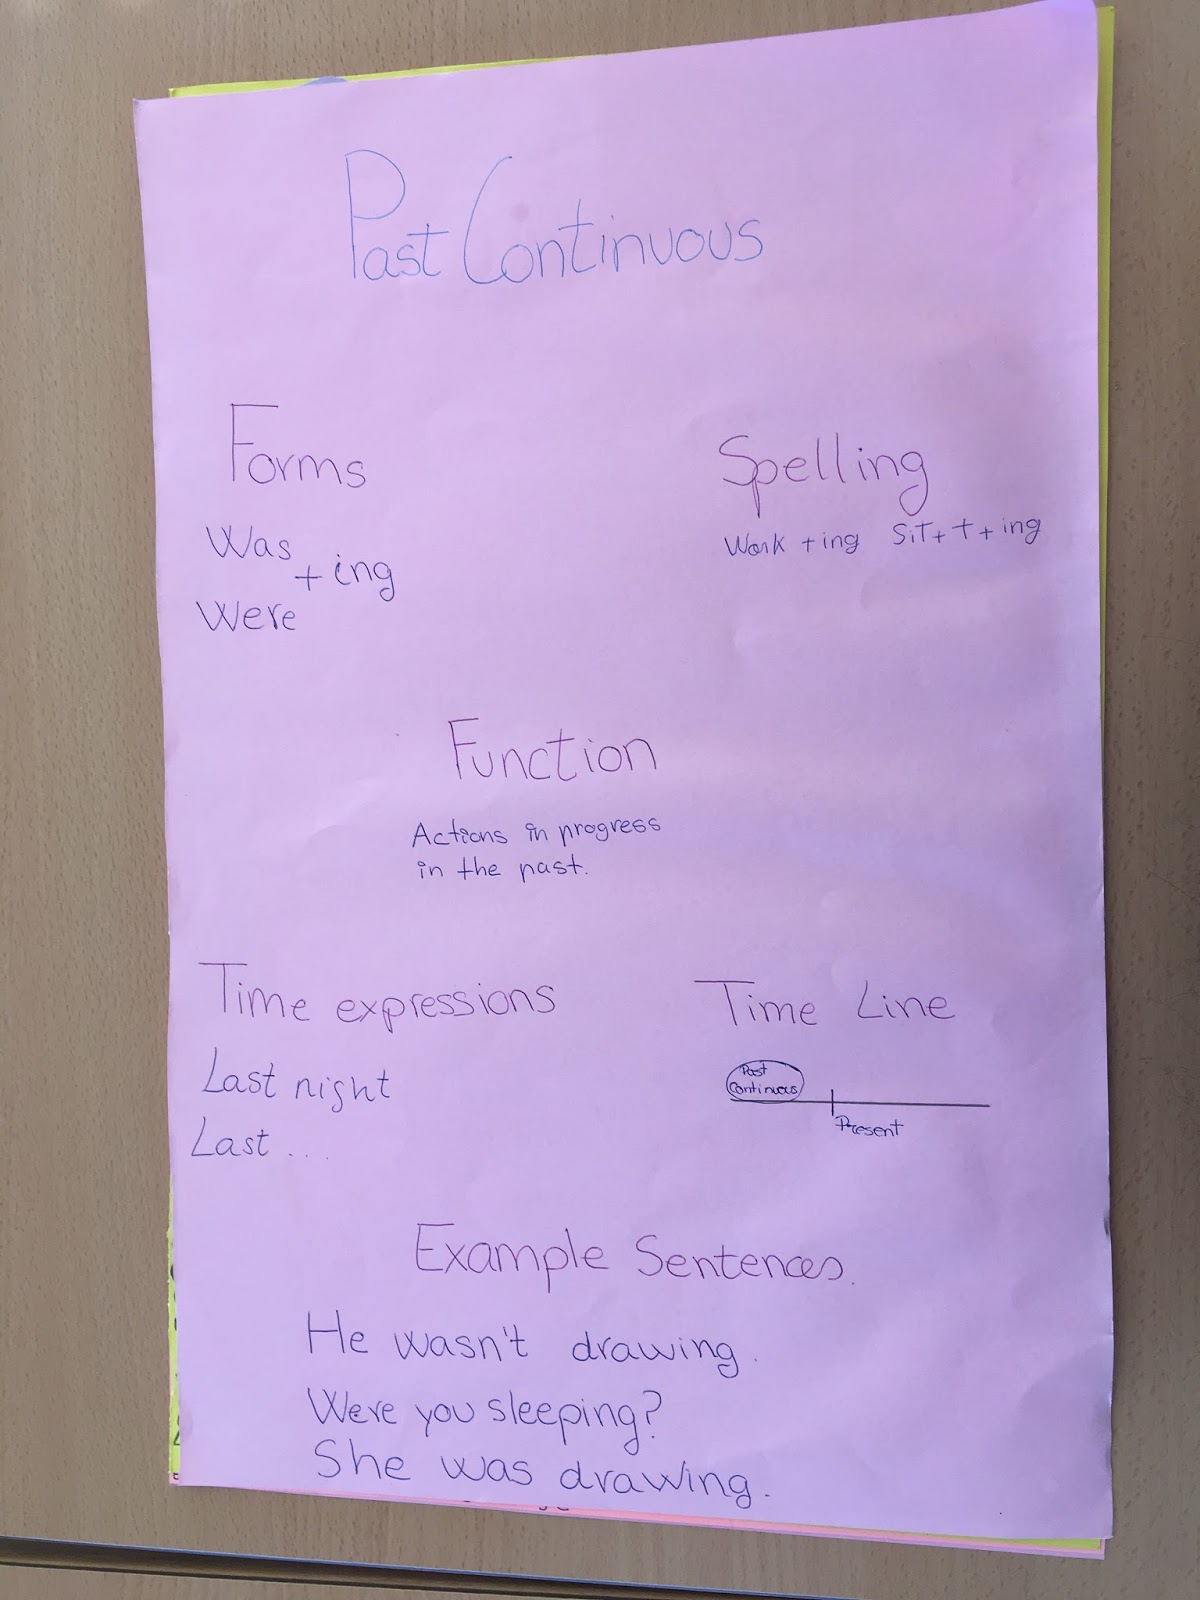 Past Continuous
Forms
Was
+ ing
Were
Spelling
Work + ing Sit + t + ing
Function
Actions in progress
in the past.
Time expressions
Last night
Last ...
Time Line
Past
Continuous
Present
Example Sentences.
He wasn't drawing.
Were you sleeping?
She was drawing.